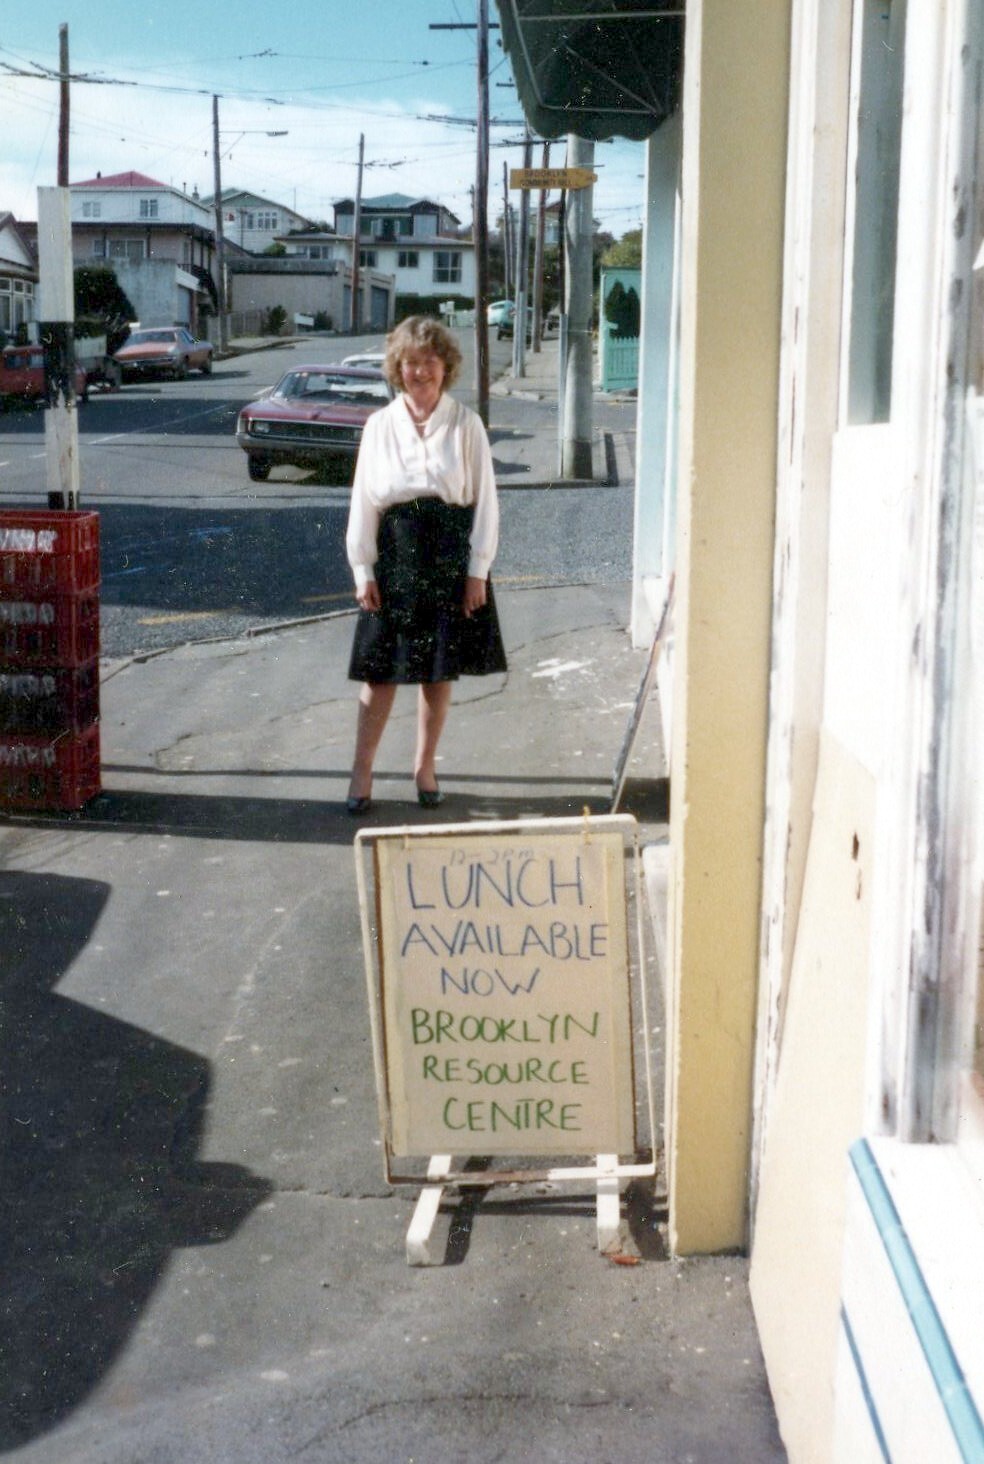 BROOKLYN
COMMUNITY HALL
12-2pm
LUNCH
AVAILABLE
NOW
BROOKLYN
RESOURCE
CENTRE